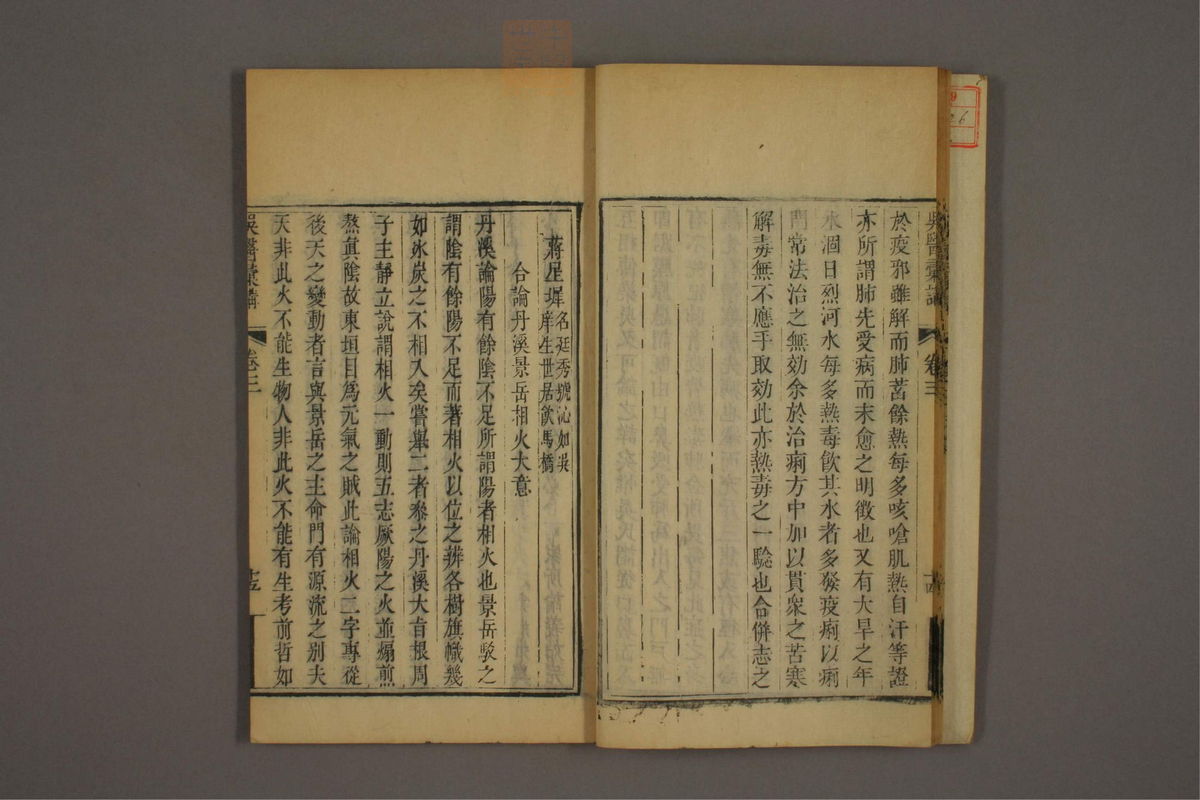 吳醫彙講 卷三 十四
於疫邪雖解而肺蓄餘熱每多咳嗆肌熱自汗等證
亦所謂肺先受病而未愈之明徵也又有大旱之年
水涸日烈河水每多熱毒飲其水者多發疫痢以痢
門常法治之無効余於治痢方中加以貫衆之苦寒
解毒無不應手取効此亦熱毒之一騐也合併志之
蔣星墀名廷秀號沁如吳
庠生世居飲馬橋
合論丹溪景岳相火大意
丹溪論陽有餘陰不足所謂陽者相火也景岳駁之
謂陰有餘陽不足而著相火以位之辨各樹旗幟幾
如冰炭之不相入矣嘗舉二者叅之丹溪大旨根周
子主靜立說謂相火一動則五志厥陽之火並煽煎
熬眞陰故東垣目爲元氣之賊此論相火二字專從
後天之變動者言與景岳之主命門有源流之別夫
天非此火不能生物人非此火不能有生考前哲如
吳醫彙講 卷三 十五